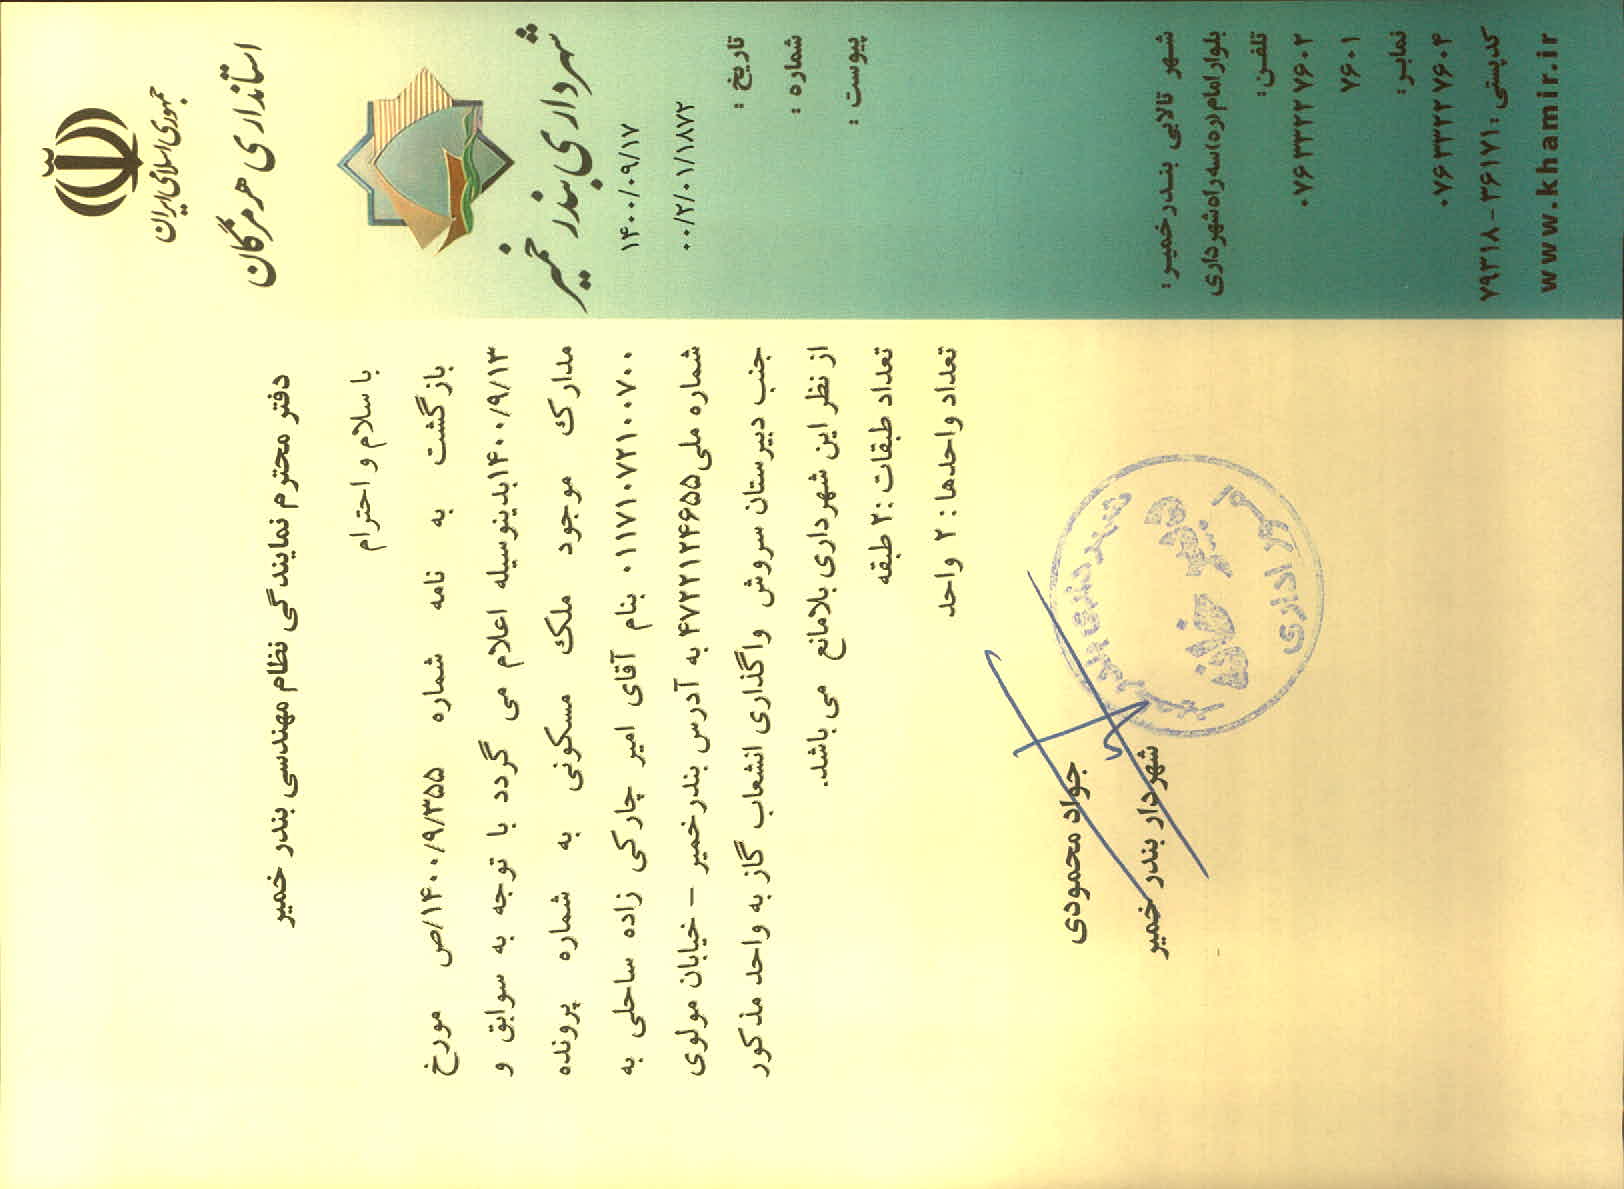 جمهوری اسلامی ایران
استانداری هرمزگان
شهرداری بندر خمیر
۱۴۰۰/۰۹/۱۷
۰۰/۲/۰۱/۱۸۷۲
تاریخ :
شماره :
پیوست :
دفتر محترم نمایندگی نظام مهندسی بندر خمیر
با سلام و احترام
بازگشت به نامه شماره ۱۴۰۰/۹/۳۵۵/ص مورخ
۱۴۰۰/۹/۱۳بدینوسیله اعلام می گردد با توجه به سوابق و
مدارک موجود ملک مسکونی به شماره پرونده
۰۱۱۷۱۰۷۲۱۰۰۷۰۰ بنام آقای امیر چارکی زاده ساحلی به
شماره ملی۴۷۲۲۱۲۴۶۵۵ به آدرس بندرخمیر – خیابان مولوی
جنب دبیرستان سروش واگذاری انشعاب گاز به واحد مذکور
از نظر این شهرداری بلامانع می باشد.
تعداد طبقات :۲ طبقه
تعداد واحدها: ۲ واحد
جواد محمودی
شهردار بندر خمیر
شهرداری بندر خمیر
دبیر خانه
امور اداری
شهر تالابی بندرخمیر:
بلوار امام(ره)سه راه شهرداری
تلفن:
۰۷۶۳۳۲۲۷۶۰۲
۷۶۰۱
نمابر:
۰۷۶۳۳۲۲۷۶۰۴
کدپستی: ۳۶۱۷۱ - ۷۹۳۱۸
www.khamir.ir